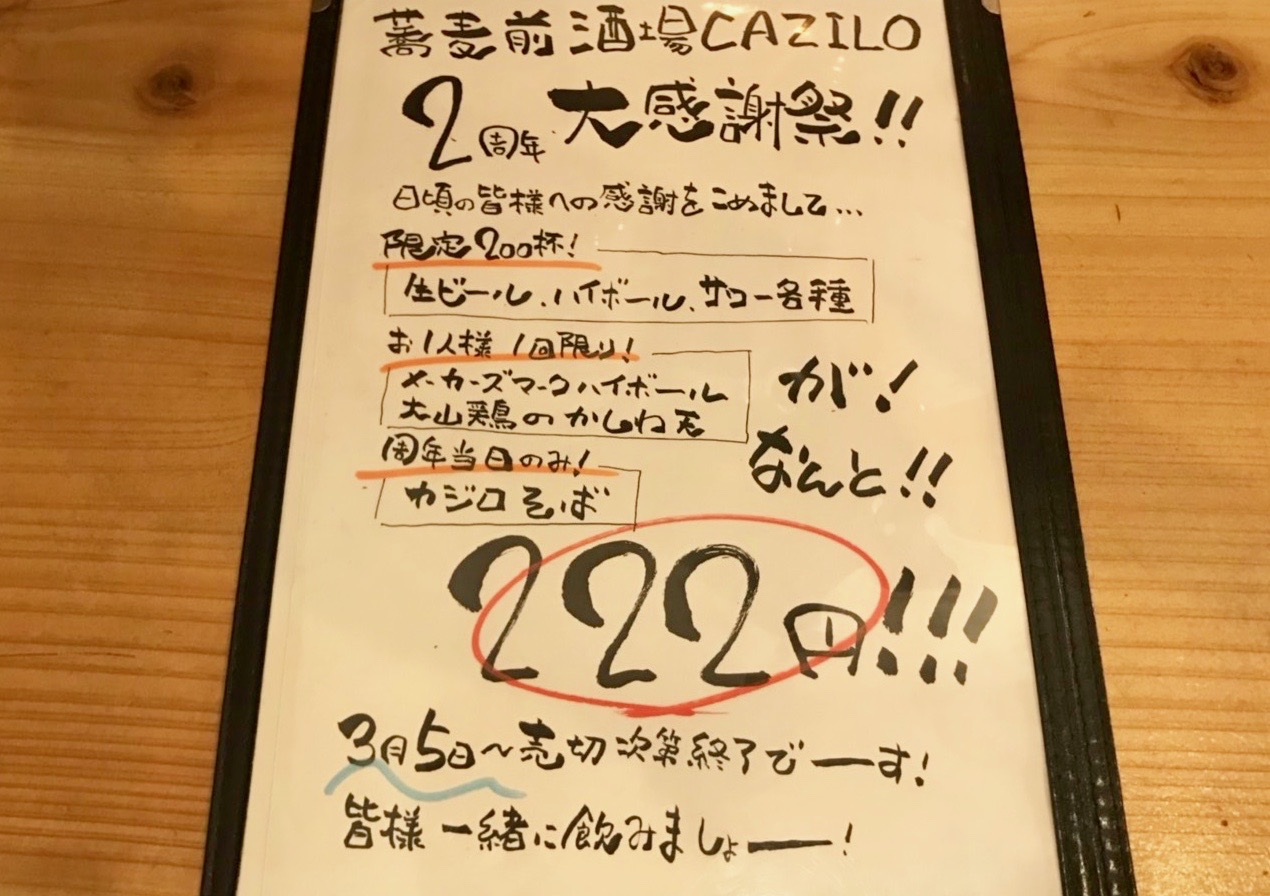 蕎麦前酒場CAZILO
2周年 大感謝祭!!
日頃の皆様への感謝をこめまして...
限定200杯!
生ビール、ハイボール、サワー各種
お1人様 1回限り!
メーカーズマークハイボール
大山鶏のかしわ天
周年当日のみ!
カジロそば
が!
なんと!!
222円!!!
3月5日~売切次第終了でーす!
皆様一緒に飲みましょー!